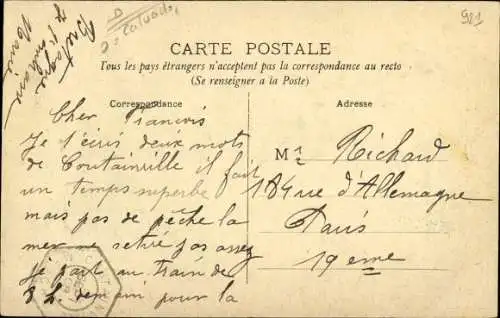 Calvados
921
Bretagne
CARTE POSTALE
Tous les pays étrangers n'acceptent pas la correspondance au recto
(Se renseigner a la Poste)
Correspondance
Adresse
Cher Francois
Je t'écris deux mots
de Coutainville il fait
un temps superbe
mais pas de pêche la
mer ne retire pas assez
je part au train de
8 h. demain pour la
Mr Richard
184 rue d'Allemagne
Paris
19 eme